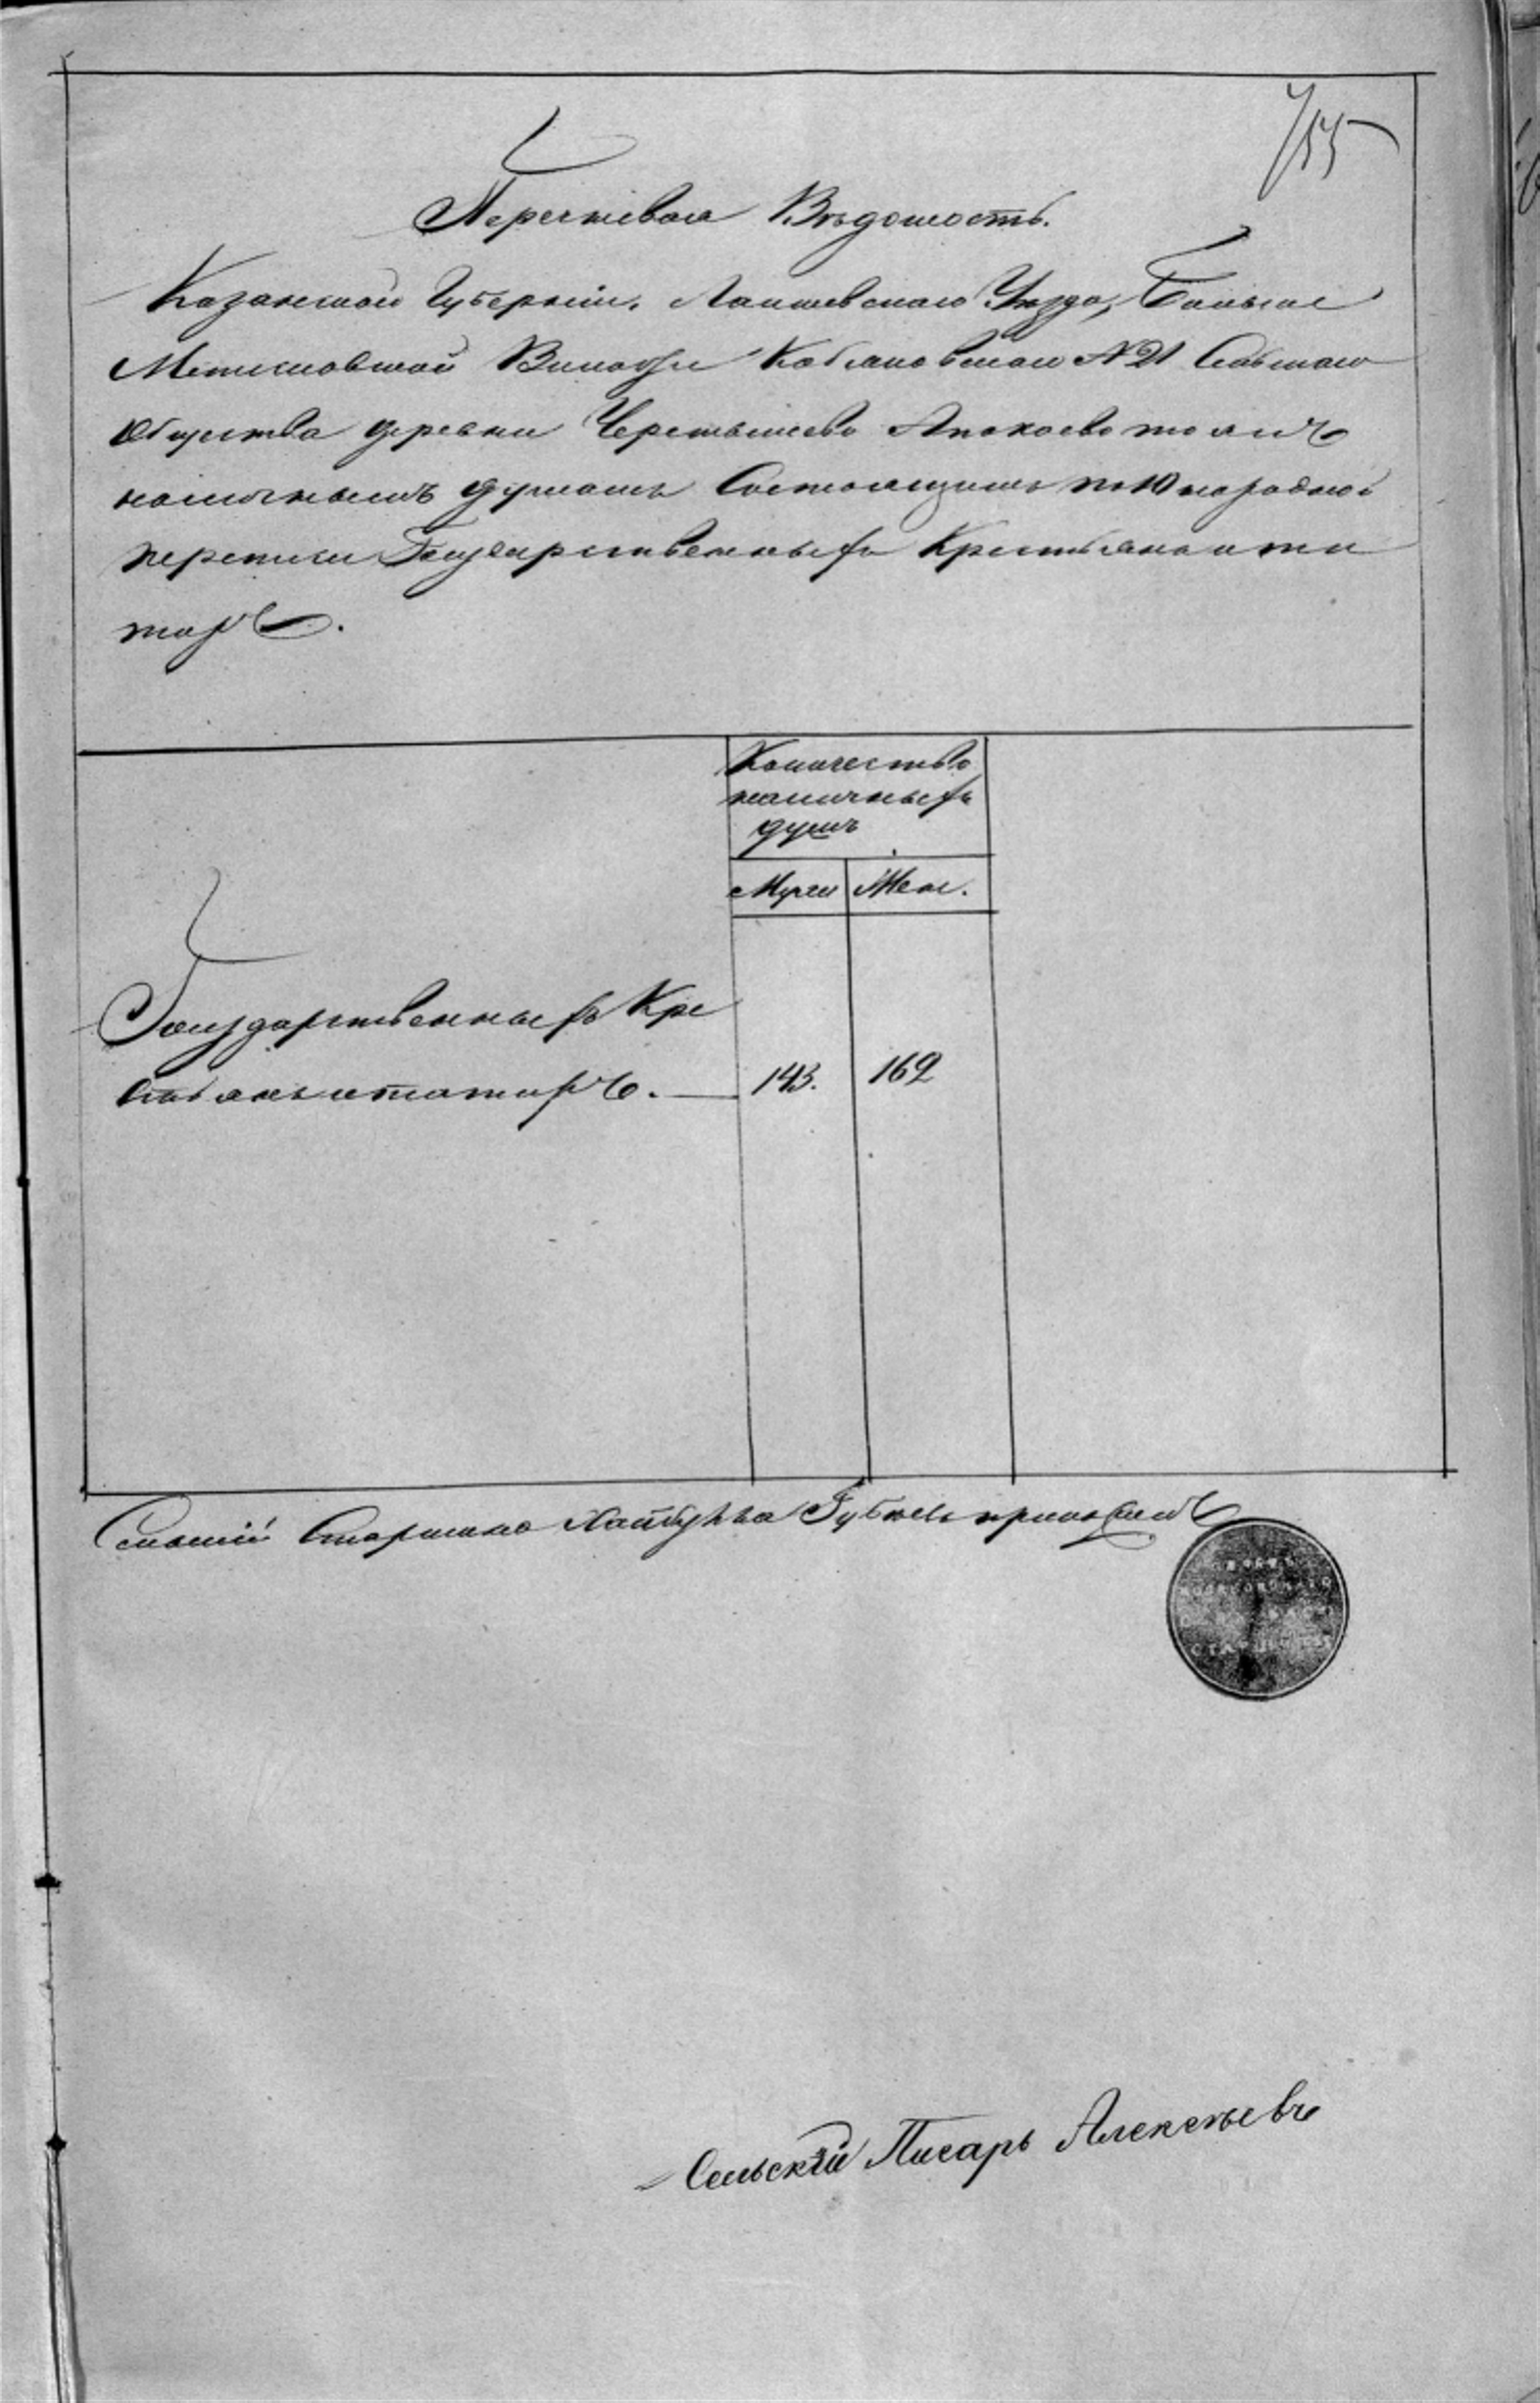 755
Перечневая Вѣдомость.
Казанской Губерніи, Лаишевскаго Уѣзда, Больше
Метесковской Волости Кобяковскаго №21 Сельскаго
Общества деревни Черемышево Апокаево тожъ
наличнымъ душамъ Состоящимъ по 10 народной
переписи Государственныхъ Крестьянъ изъ та
таръ.
Количество
наличныхъ
душъ
Муж. Жен.
Государственныхъ Кре
стьянъ изъ татаръ. 143. 162
Сельскій Старшина Хайбулла Губаевъ приложилъ
ПЕЧАТЬ
КОБЯКОВСКАГО
СЕЛЬСКАГО
СТАРШИНЫ
Сельскій Писарь Алексѣевъ